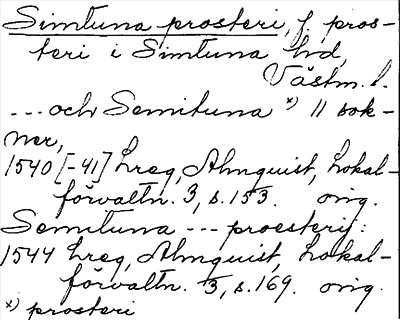 Simtuna prosteri, f. pros-
teri i Simtuna hd,
Västm. l.
--- och Semituna x) 11 sok-
ner,
1540 [-41] hreg, Almquist, Lokal-
förvaltn. 3, s. 153. orig.
Semtuna --- proesterij:
1544 hreg, Almquist, Lokal-
förvaltn. 3, s. 169. orig.
x) prosteri